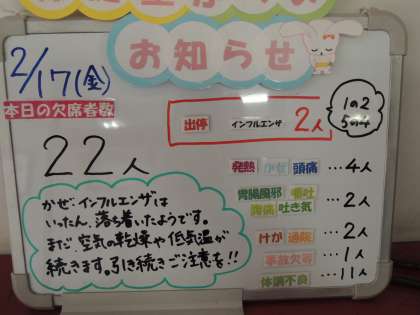 お知らせ
2/17(金)
本日の欠席者数
22人
出停 インフルエンザ 2人
1の2
5の4
発熱 かぜ 頭痛 …4人
胃腸風邪 嘔吐
腹痛 吐き気 …2人
けが 通院 …2人
事故欠等 …1人
体調不良 …11人
かぜ、インフルエンザは
いったん、落ち着いたようです。
まだ空気の乾燥や低気温が
続きます。引き続きご注意を!!